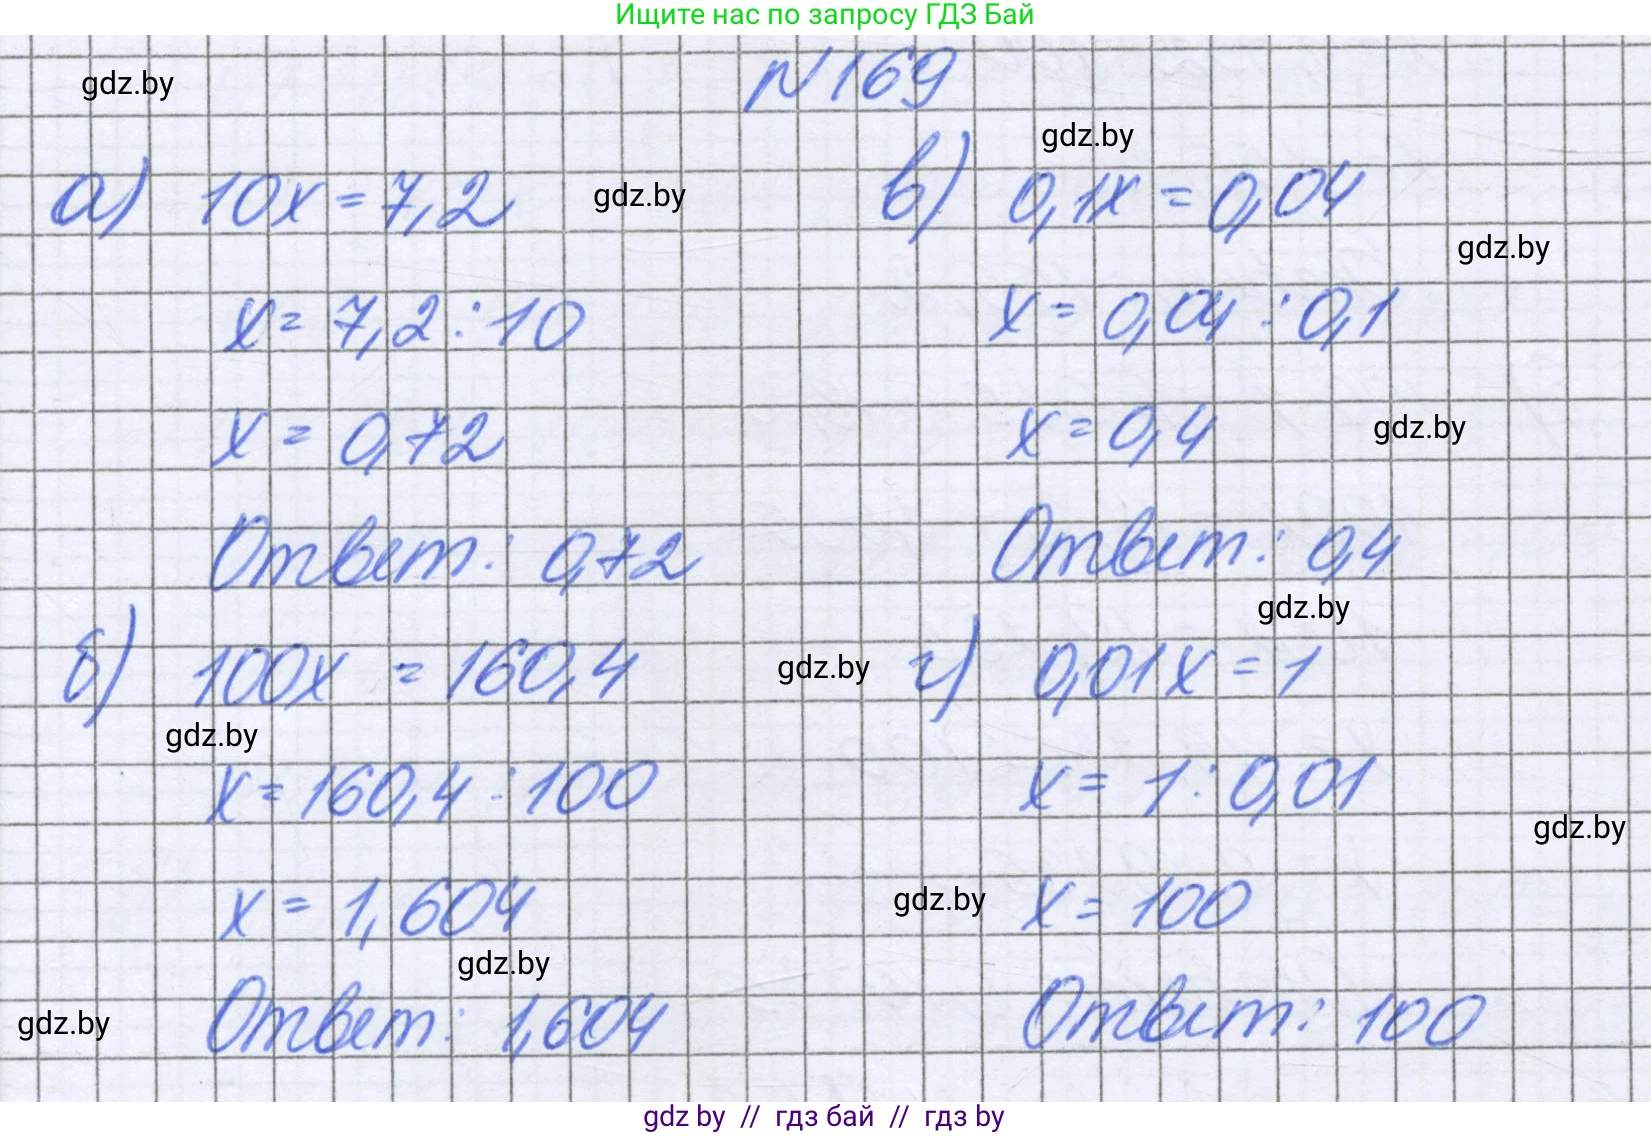 Ищите нас по запросу ГДЗ Бай
N169
gdz.by
gdz.by
а) 10x = 7,2
gdz.by
x = 7,2 : 10
x = 0,72
Ответ: 0,72
в) 0,1x = 0,04
gdz.by
x = 0,04 : 0,1
x = 0,4
gdz.by
Ответ: 0,4
gdz.by
б) 100x = 160,4
gdz.by
gdz.by
x = 160,4 : 100
x = 1,604
gdz.by
Ответ: 1,604
gdz.by
г) 0,01x = 1
x = 1 : 0,01
gdz.by
gdz.by
x = 100
Ответ: 100
gdz by // гдз бай // гдз by